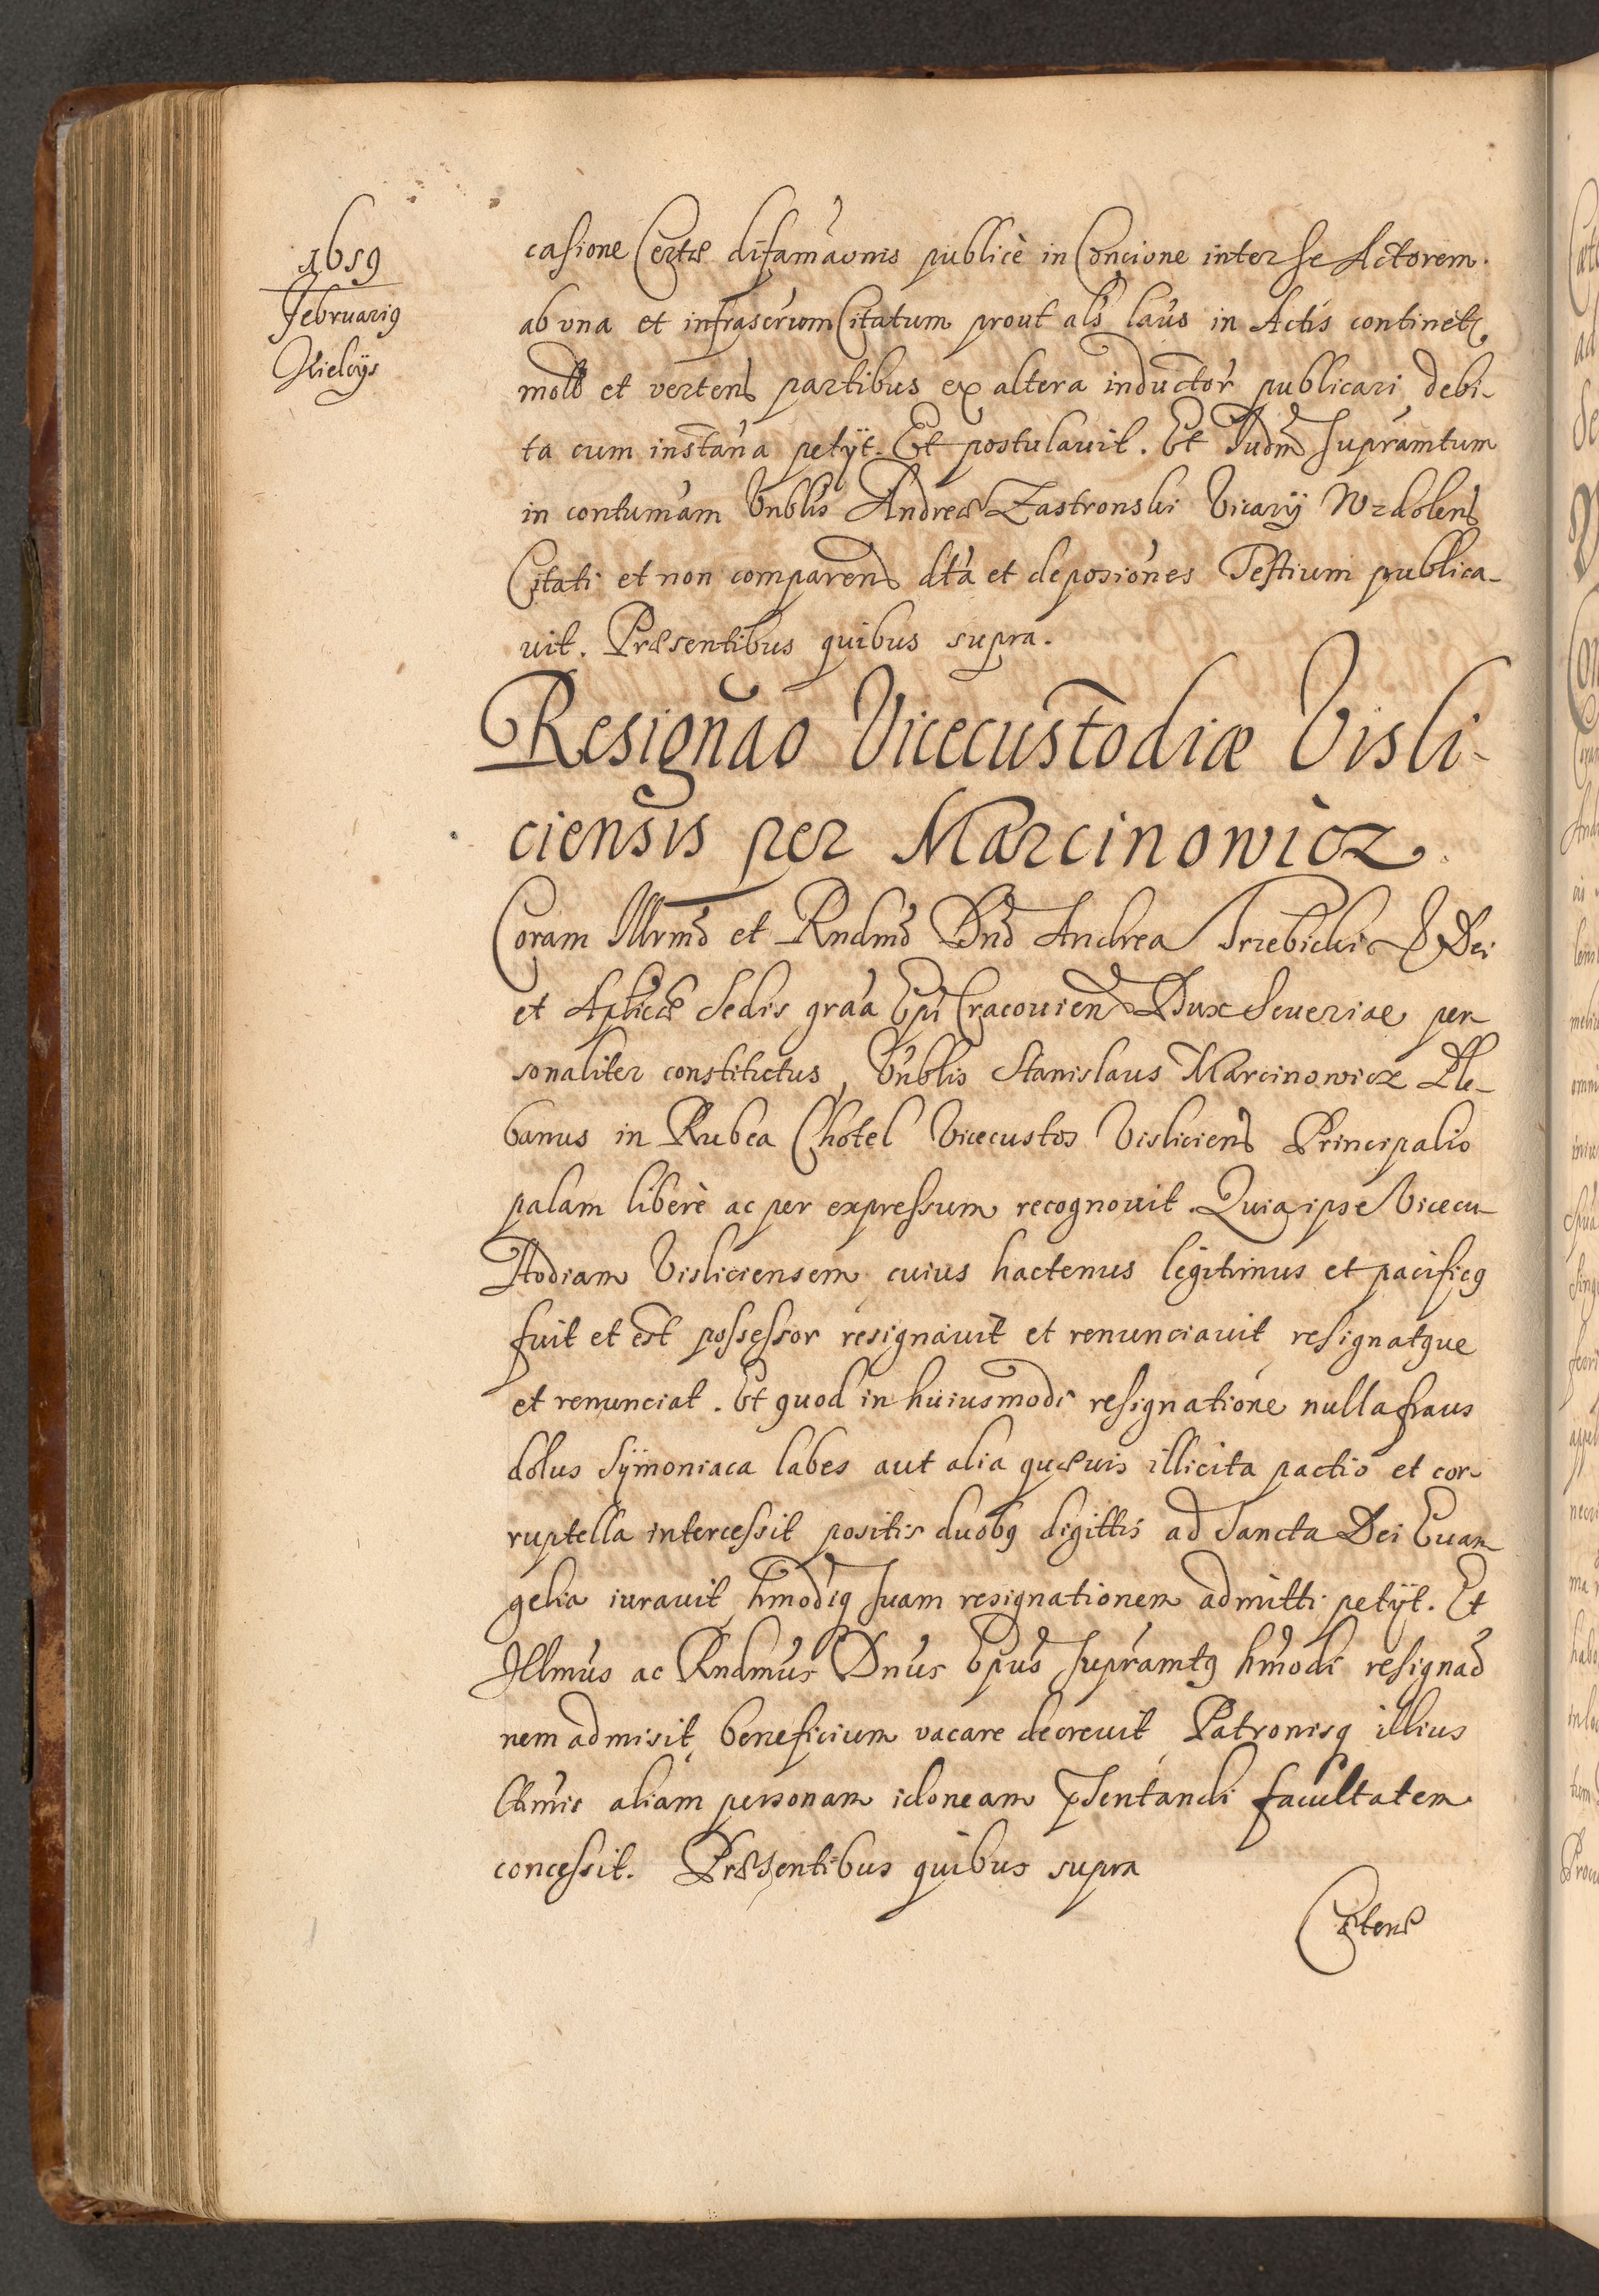 1659
Februarig
Kielcys
casione Certæ difamaonis publicè in Concione inter se Actorem
ab vna et infrascrum Citatum prout als laus in Actis continet
mott et vertens partibus ex altera inductor publicari debi-
ta cum instana petÿt. Et postulauit. Et Judm supramtum
in contumam Vnblis Andreæ Zastronski Vicarÿ Wzdolens
Citati et non comparens dta et deposiones Testium publica-
uit. Præsentibus quibus supra.
Resignao Vicecustodiæ Visli-
ciensis per Marcinowicz
Coram Illrmo et Rndmo Dno Andrea Trzebicki Dei
et Aplicæ Sedis graa Epi Cracouien Dux Seueriae per-
sonaliter constitutus, Vnblis Stanislaus Marcinowicz Ple-
banus in Rubea Chotel Vicecustos Visliciens Principalis
palam liberè ac per expressum recognouit. Quia ipse Vicecu-
stodiam Visliciensem cuius hactenus legitimus et pacificq
fuit et est possessor resignauit et renunciauit resignatque
et renunciat. Et quod in huiusmodi resignatione nulla fraus
dolus Sÿmoniaca labes aut alia quæuis illicita pactio et cor-
ruptella intercessit positis duobq digittis ad Sancta Dei Euan-
gelia iurauit hmodiq suam resignationem admitti petÿt. Et
Illmus ac Rndmus Dnus Epus supramtq hmodi resignao
nem admisit beneficium vacare decreuit Patronisq illius
ltimis aliam personam idoneam psentandi facultatem
concessit. Præsentibus quibus supra